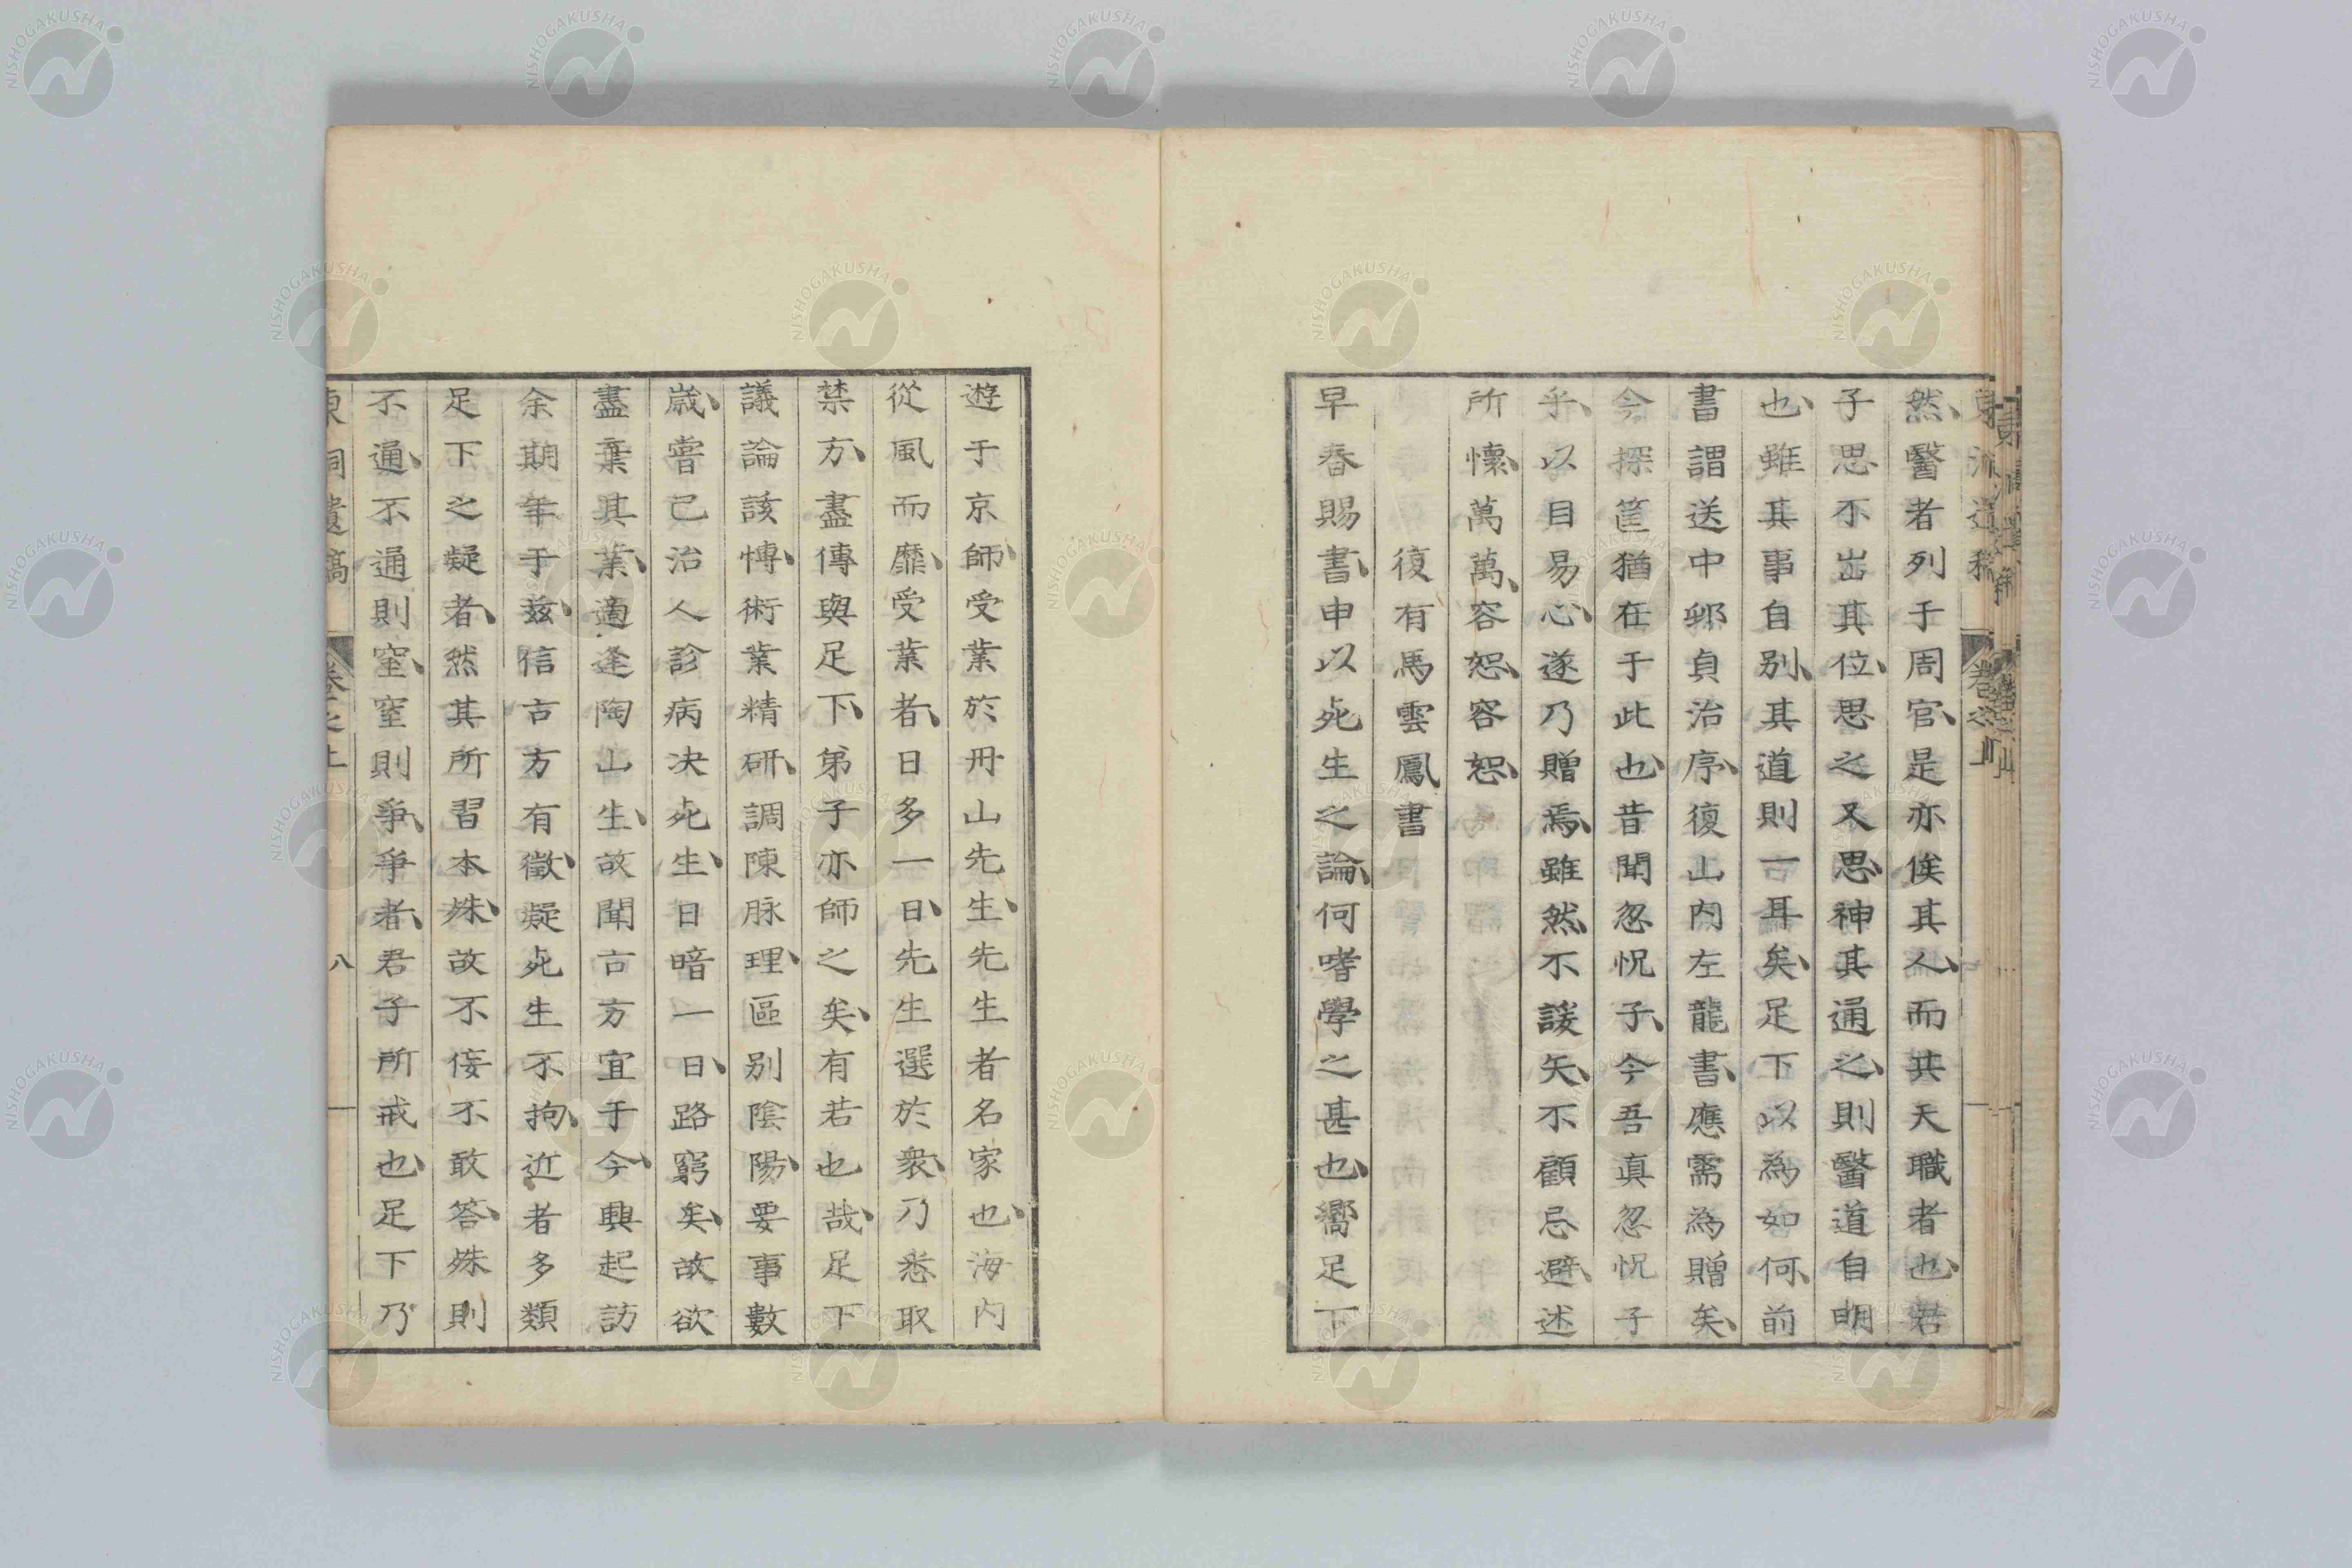 然、醫者列于周官、是亦俟其人、而其天職者也、君
子思不出其位、思之又思、神其通之、則醫道自明
也、雖其事自別、其道則一耳矣、足下以為如何、前
書謂送中邨貞治序、復山內左龍書、應需為贈矣、
今探筐猶在于此也、昔聞忽怳子、今吾真忽怳子
乎、以目易心、遂乃贈焉、雖然、不諼矢、不顧忌避、述
所懷、萬萬、容恕、容恕、
復有馬雲鳳書
早春賜書、申以死生之論、何嗜學之甚也、嚮足下
遊于京師、受業於丹山先生、先生者名家也、海內
從風而靡、受業者、日多一日、先生選於衆、乃悉取
禁方、盡傳與足下、弟子亦師之矣、有若也哉、足下
議論該博、術業精研、調陳脉理、區別陰陽、要事數
歲、嘗已治人診病決死生、日暗一日、路窮矣、故欲
盡棄其業、適逢陶山生、故聞古方宜于今、興起訪
余期年于茲、信古方有徵、疑死生不拘、近者多類
足下之疑者、然其所習本殊、故不佞不敢答、殊則
不通、不通則窒、窒則爭、爭者、君子所戒也、足下乃
東洞遺稿 卷之上 八